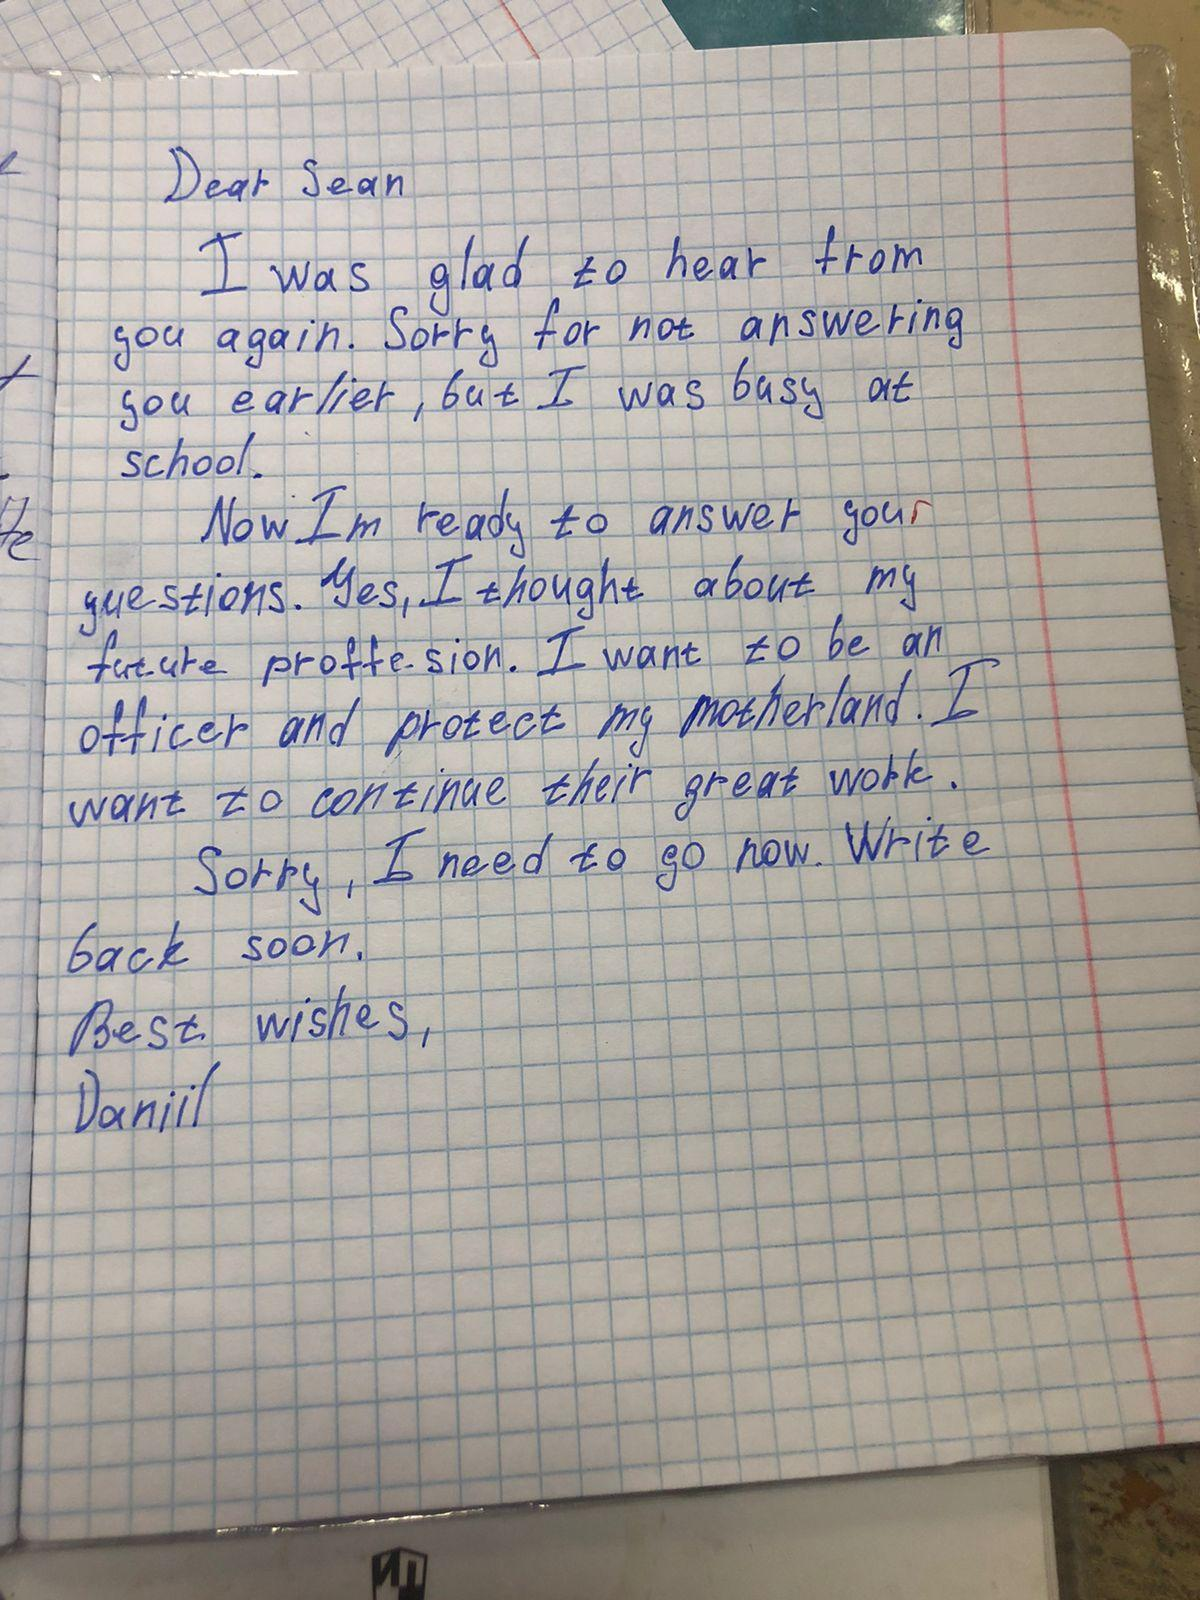 Dear Sean
I was glad to hear from
you again. Sorry for not answering
you earlier, but I was busy at
school.
Now Im ready to answer your
questions. Yes, I thought about my
future proffesion. I want to be an
officer and protect my motherland. I
want to continue their great work.
Sorry, I need to go now. Write
back soon.
Best wishes,
Daniil